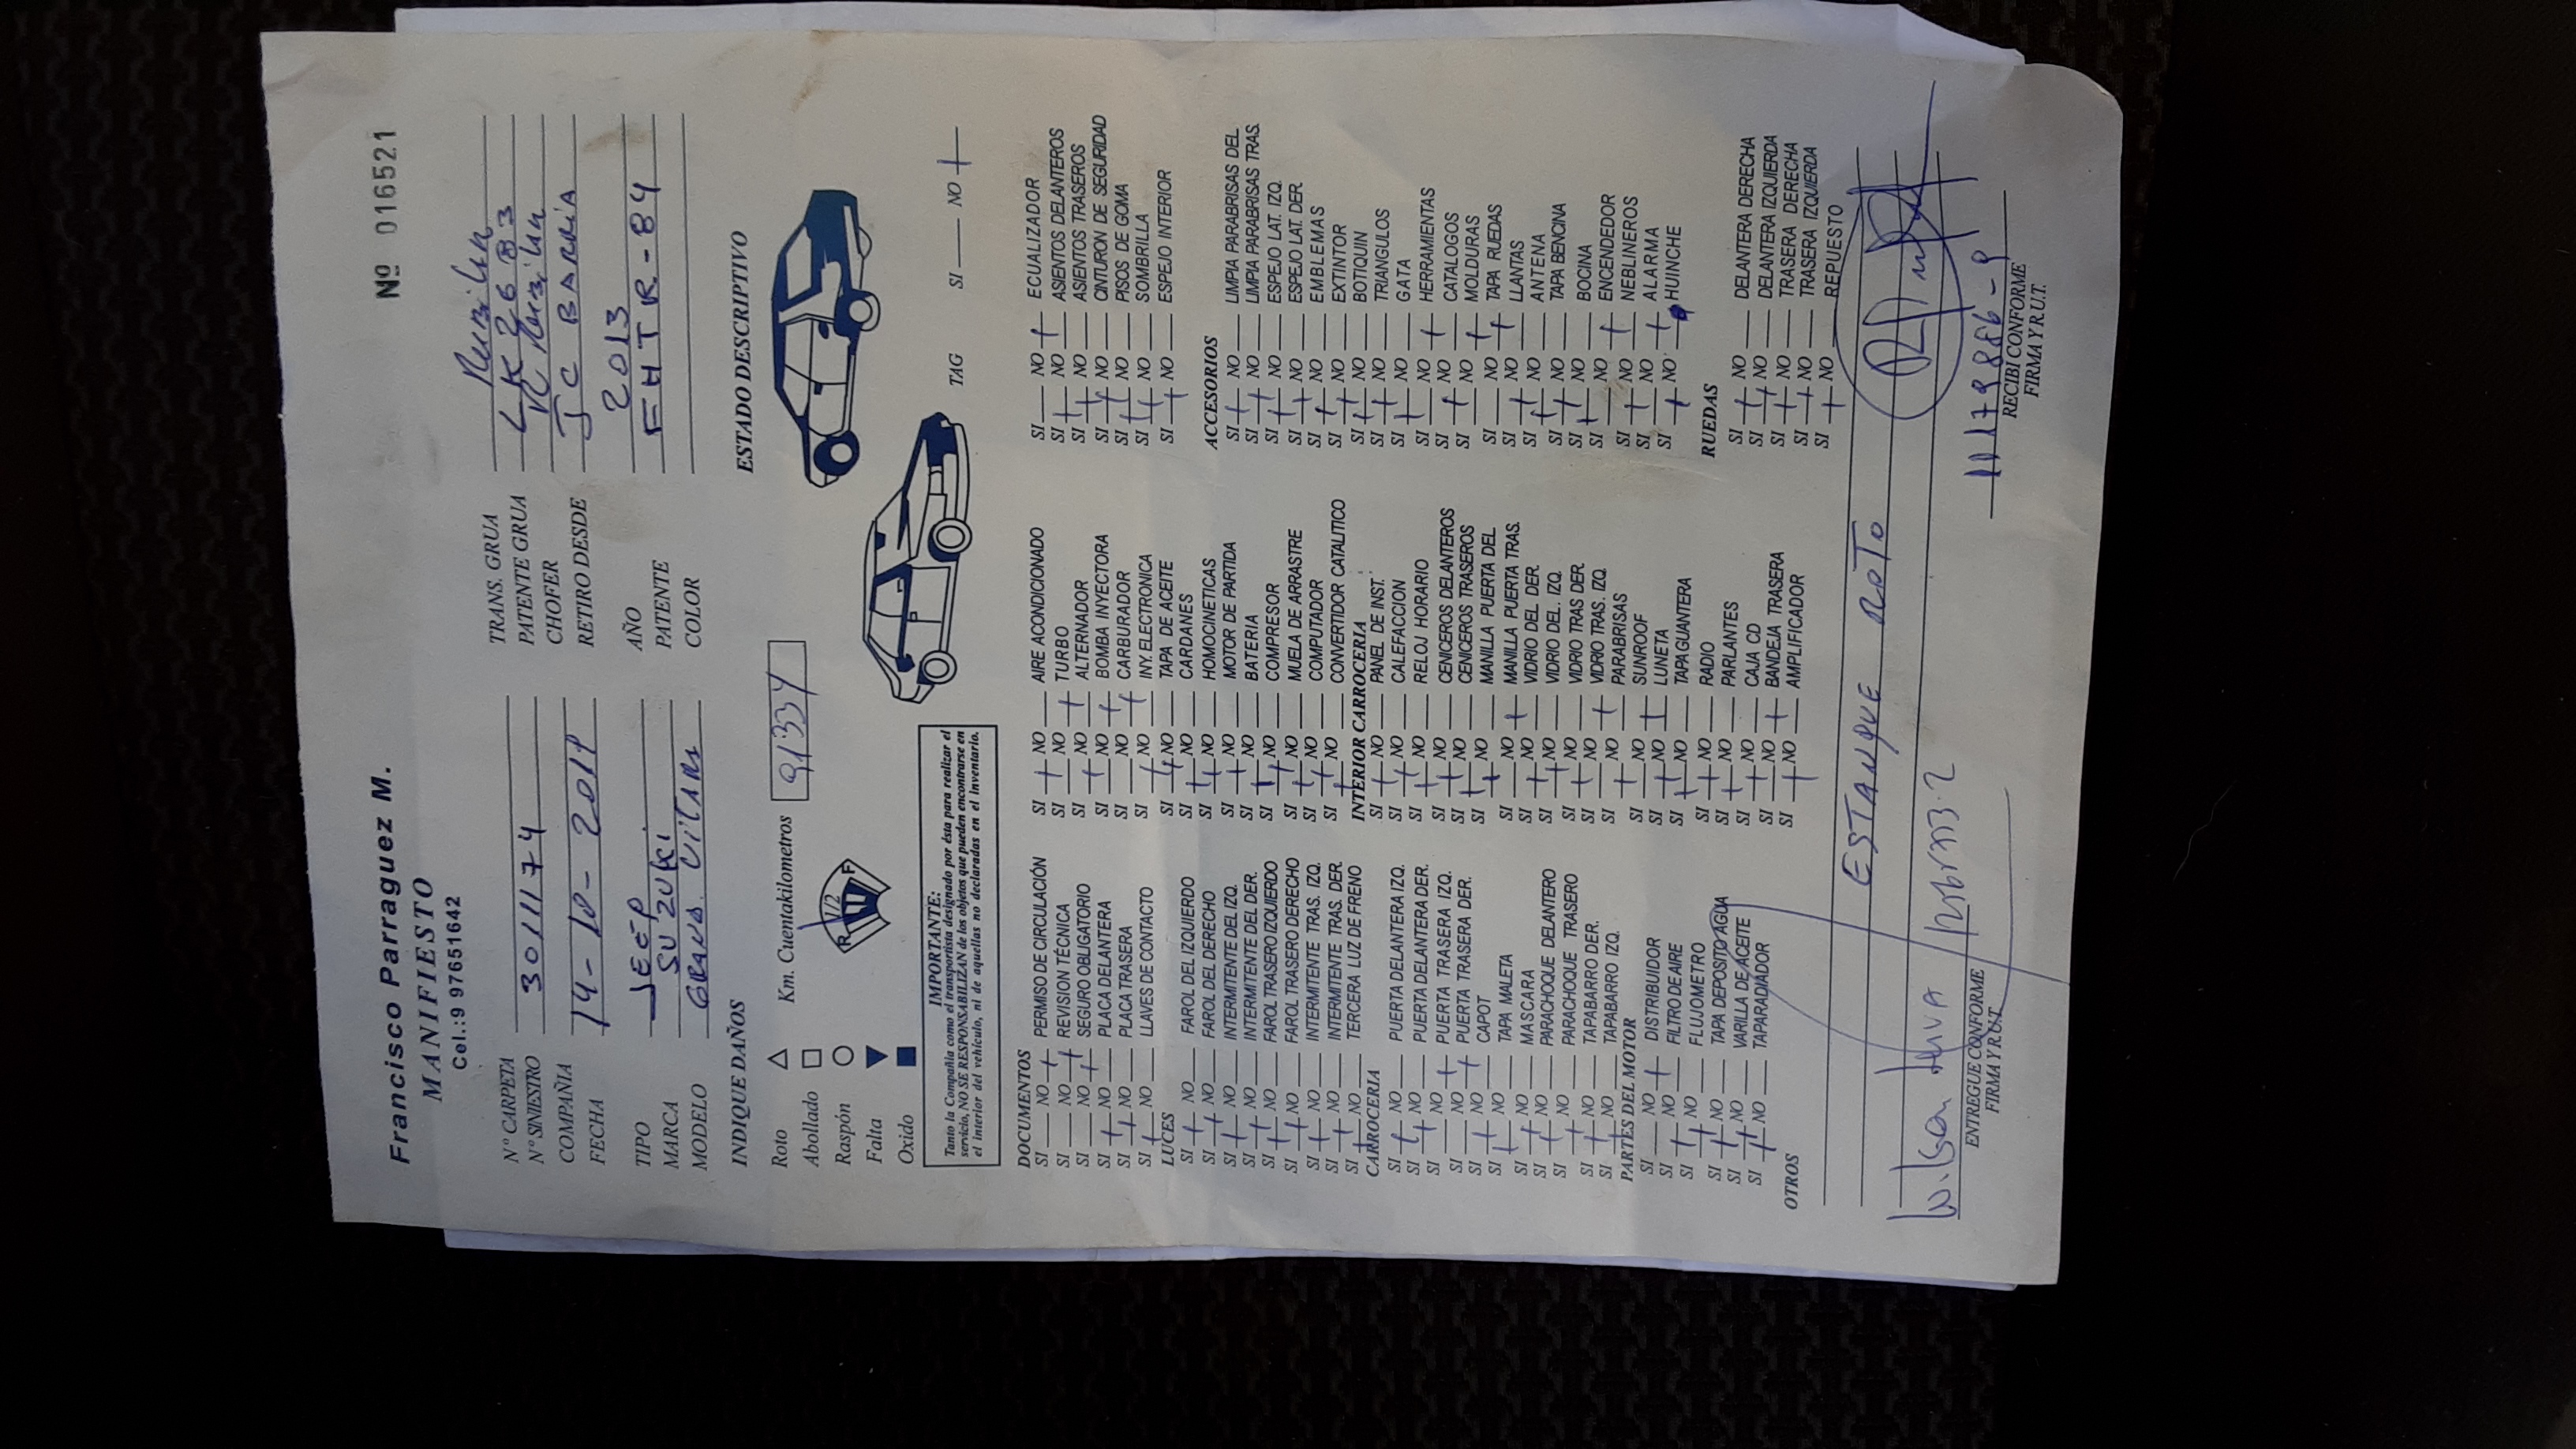 Francisco Parraguez M.
MANIFIESTO
Cel.:9 97651642
Nº 016521
Nº CARPETA
Nº SINIESTRO 30111174
COMPAÑIA
FECHA 14-10-2019
TIPO JEEP
MARCA SUZUKI
MODELO GRAND VITARA
TRANS. GRUA
PATENTE GRUA LK 26 B3
CHOFER
RETIRO DESDE JC BARRIA
AÑO 2013
PATENTE FHTR-84
COLOR
INDIQUE DAÑOS
ESTADO DESCRIPTIVO
Roto
Abollado
Raspón
Falta
Oxido
Km. Cuentakilometros 91334
R 1/2 F
IMPORTANTE:
Tanto la Compañía como el transportista designado por ésta para realizar el
servicio, NO SE RESPONSABILIZAN de los objetos que pueden encontrarse en
el interior del vehículo, ni de aquellas no declaradas en el inventario.
TAG SI NO
DOCUMENTOS
SI NO PERMISO DE CIRCULACIÓN
SI NO REVISION TÉCNICA
SI NO SEGURO OBLIGATORIO
SI NO PLACA DELANTERA
SI NO PLACA TRASERA
SI NO LLAVES DE CONTACTO
LUCES
SI NO FAROL DEL IZQUIERDO
SI NO FAROL DEL DERECHO
SI NO INTERMITENTE DEL IZQ.
SI NO INTERMITENTE DEL DER.
SI NO FAROL TRASERO IZQUIERDO
SI NO FAROL TRASERO DERECHO
SI NO INTERMITENTE TRAS. IZQ.
SI NO INTERMITENTE TRAS. DER.
SI NO TERCERA LUZ DE FRENO
CARROCERIA
SI NO PUERTA DELANTERA IZQ.
SI NO PUERTA DELANTERA DER.
SI NO PUERTA TRASERA IZQ.
SI NO PUERTA TRASERA DER.
SI NO CAPOT
SI NO TAPA MALETA
SI NO MASCARA
SI NO PARACHOQUE DELANTERO
SI NO PARACHOQUE TRASERO
SI NO TAPABARRO DER.
SI NO TAPABARRO IZQ.
PARTES DEL MOTOR
SI NO DISTRIBUIDOR
SI NO FILTRO DE AIRE
SI NO FLUJOMETRO
SI NO TAPA DEPOSITO AGUA
SI NO VARILLA DE ACEITE
SI NO TAPARADIADOR
SI NO AIRE ACONDICIONADO
SI NO TURBO
SI NO ALTERNADOR
SI NO BOMBA INYECTORA
SI NO CARBURADOR
SI NO INY. ELECTRONICA
SI NO TAPA DE ACEITE
SI NO CARDANES
SI NO HOMOCINETICAS
SI NO MOTOR DE PARTIDA
SI NO BATERIA
SI NO COMPRESOR
SI NO MUELA DE ARRASTRE
SI NO COMPUTADOR
SI NO CONVERTIDOR CATALITICO
INTERIOR CARROCERIA
SI NO PANEL DE INST.
SI NO CALEFACCION
SI NO RELOJ HORARIO
SI NO CENICEROS DELANTEROS
SI NO CENICEROS TRASEROS
SI NO MANILLA PUERTA DEL
SI NO MANILLA PUERTA TRAS.
SI NO VIDRIO DEL DER.
SI NO VIDRIO DEL. IZQ.
SI NO VIDRIO TRAS DER.
SI NO VIDRIO TRAS. IZQ.
SI NO PARABRISAS
SI NO SUNROOF
SI NO LUNETA
SI NO TAPAGUANTERA
SI NO RADIO
SI NO PARLANTES
SI NO CAJA CD
SI NO BANDEJA TRASERA
SI NO AMPLIFICADOR
SI NO ECUALIZADOR
SI NO ASIENTOS DELANTEROS
SI NO ASIENTOS TRASEROS
SI NO CINTURON DE SEGURIDAD
SI NO PISOS DE GOMA
SI NO SOMBRILLA
SI NO ESPEJO INTERIOR
ACCESORIOS
SI NO LIMPIA PARABRISAS DEL
SI NO LIMPIA PARABRISAS TRAS.
SI NO ESPEJO LAT. IZQ.
SI NO ESPEJO LAT. DER.
SI NO EMBLEMAS
SI NO EXTINTOR
SI NO BOTIQUIN
SI NO TRIANGULOS
SI NO GATA
SI NO HERRAMIENTAS
SI NO CATALOGOS
SI NO MOLDURAS
SI NO TAPA RUEDAS
SI NO LLANTAS
SI NO ANTENA
SI NO TAPA BENCINA
SI NO BOCINA
SI NO ENCENDEDOR
SI NO NEBLINEROS
SI NO ALARMA
SI NO HUINCHE
RUEDAS
SI NO DELANTERA DERECHA
SI NO DELANTERA IZQUIERDA
SI NO TRASERA DERECHA
SI NO TRASERA IZQUIERDA
SI NO REPUESTO
OTROS
ESTANQUE ROTO
ENTREGUE CONFORME
FIRMA Y R.U.T.
RECIBI CONFORME
FIRMA Y R.U.T.